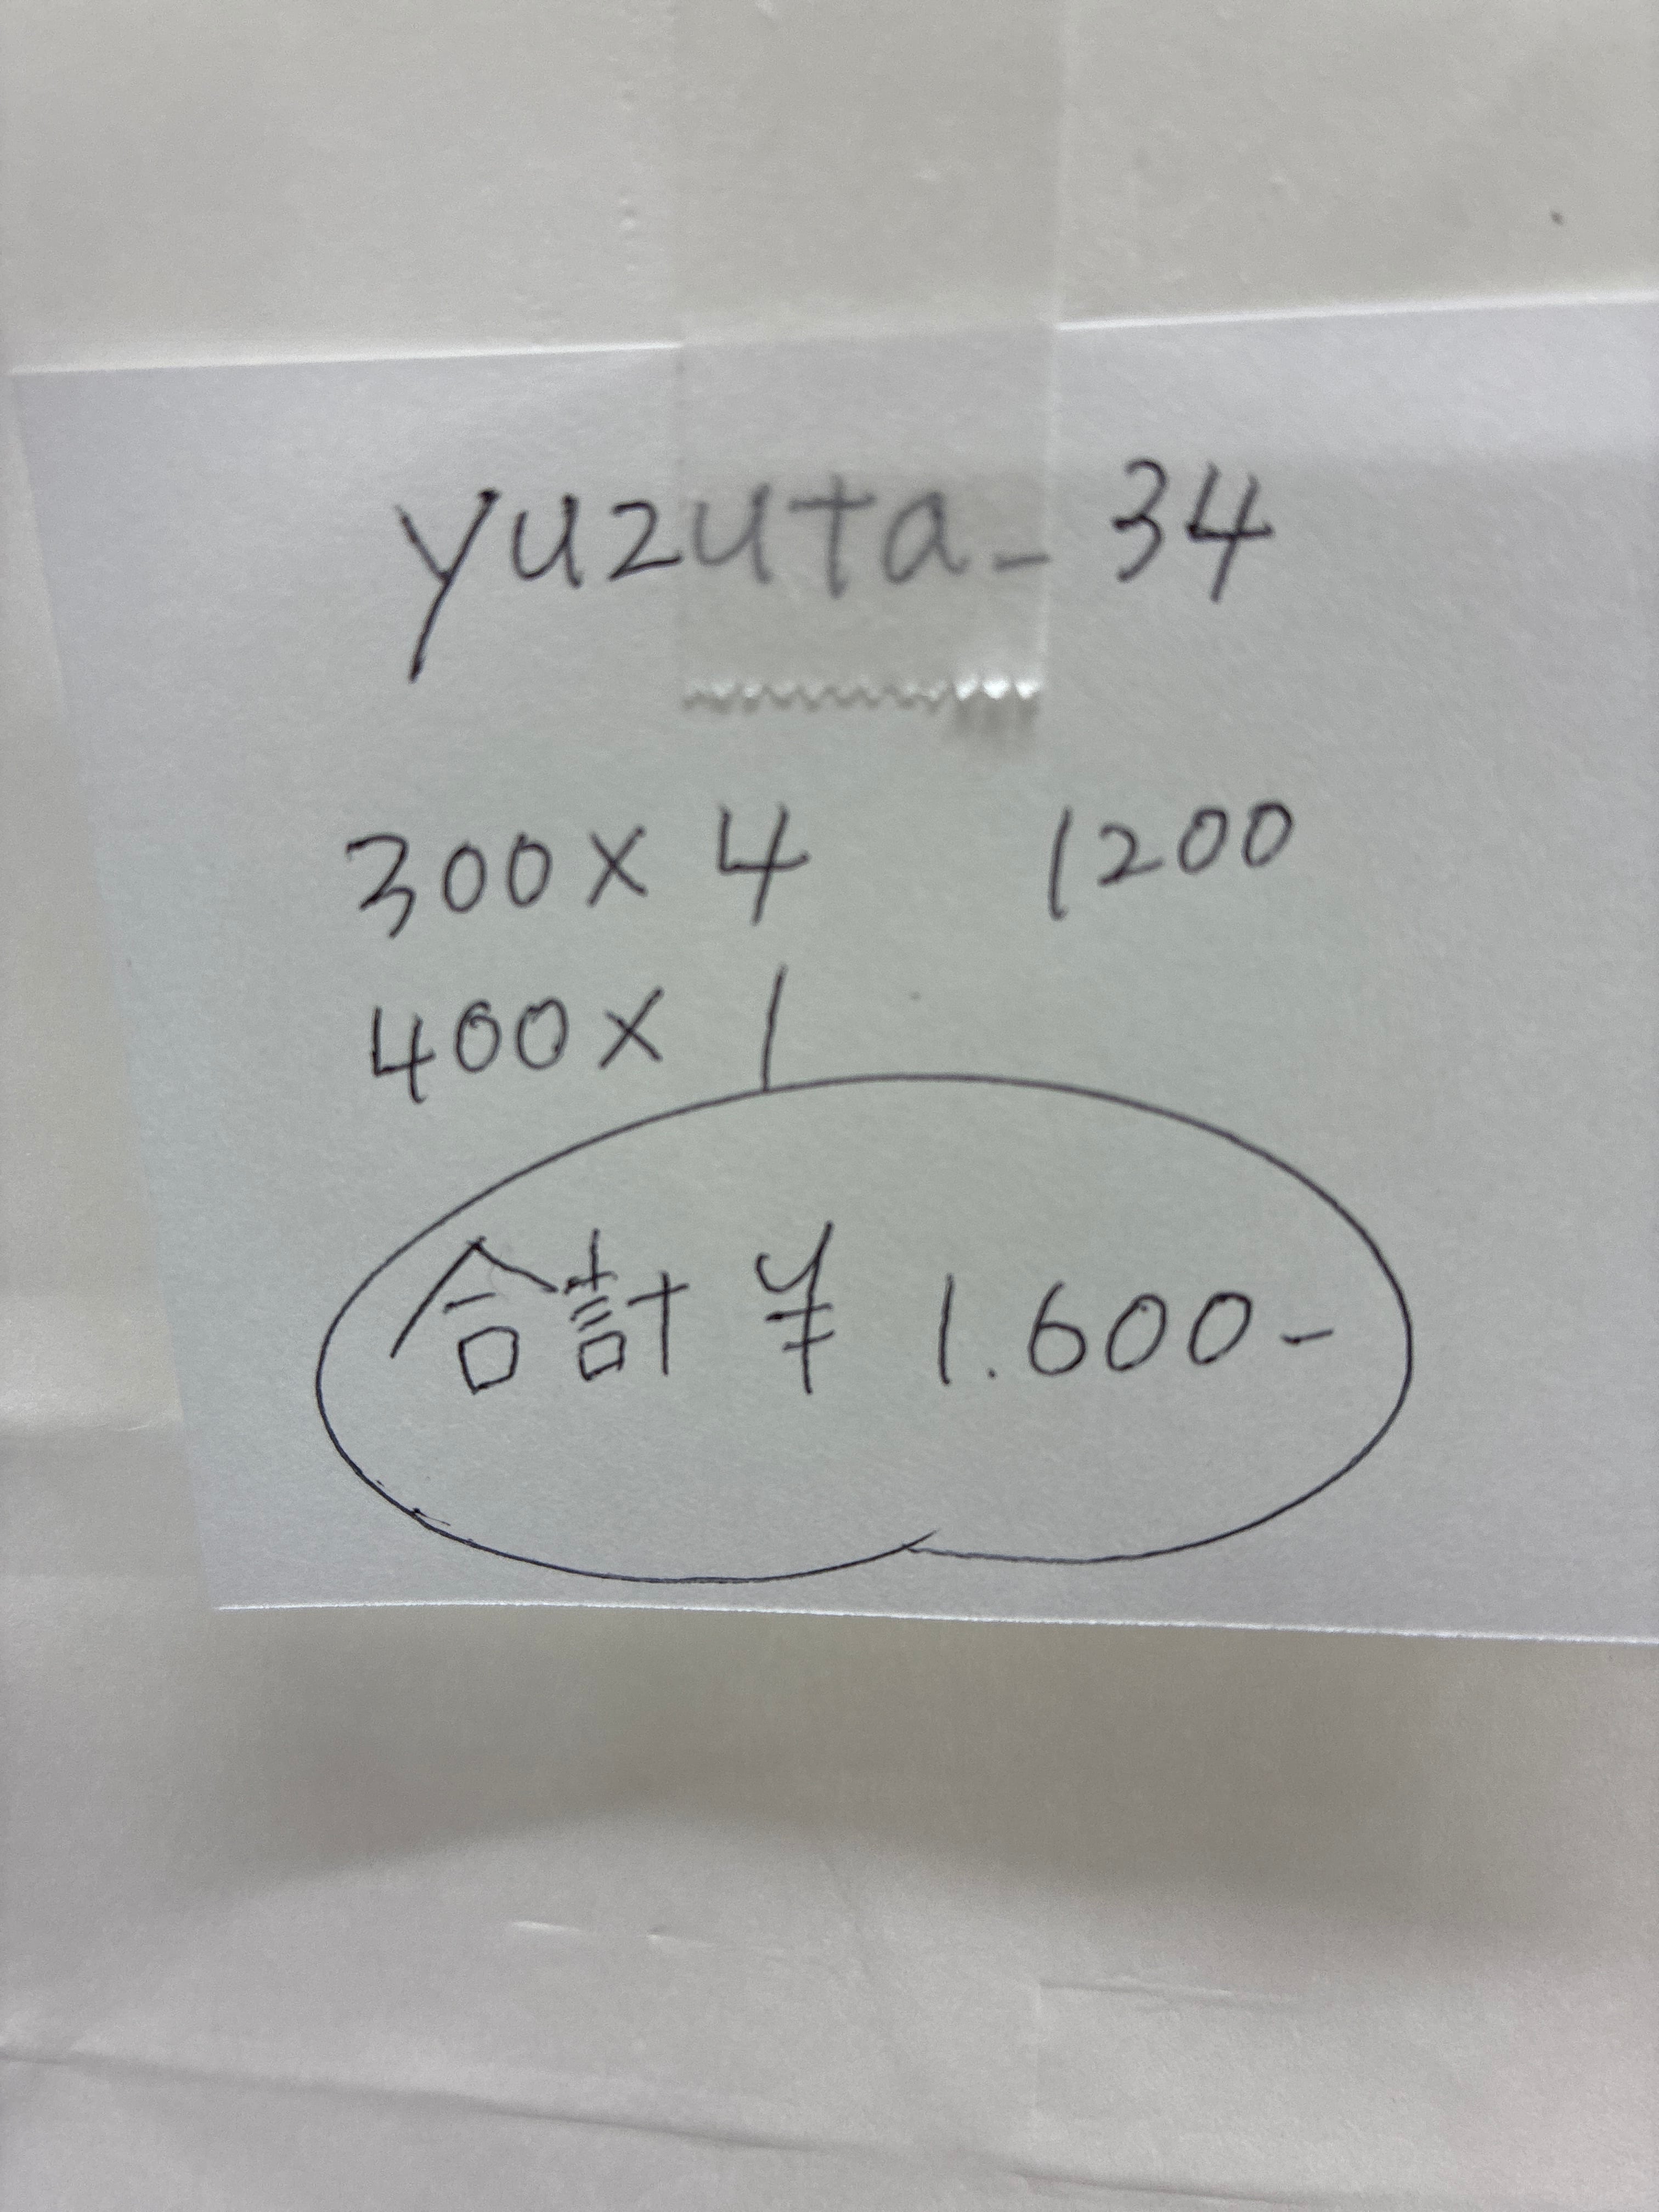 yuzuta_34
300×4 1200
400×1
合計 ¥ 1.600-